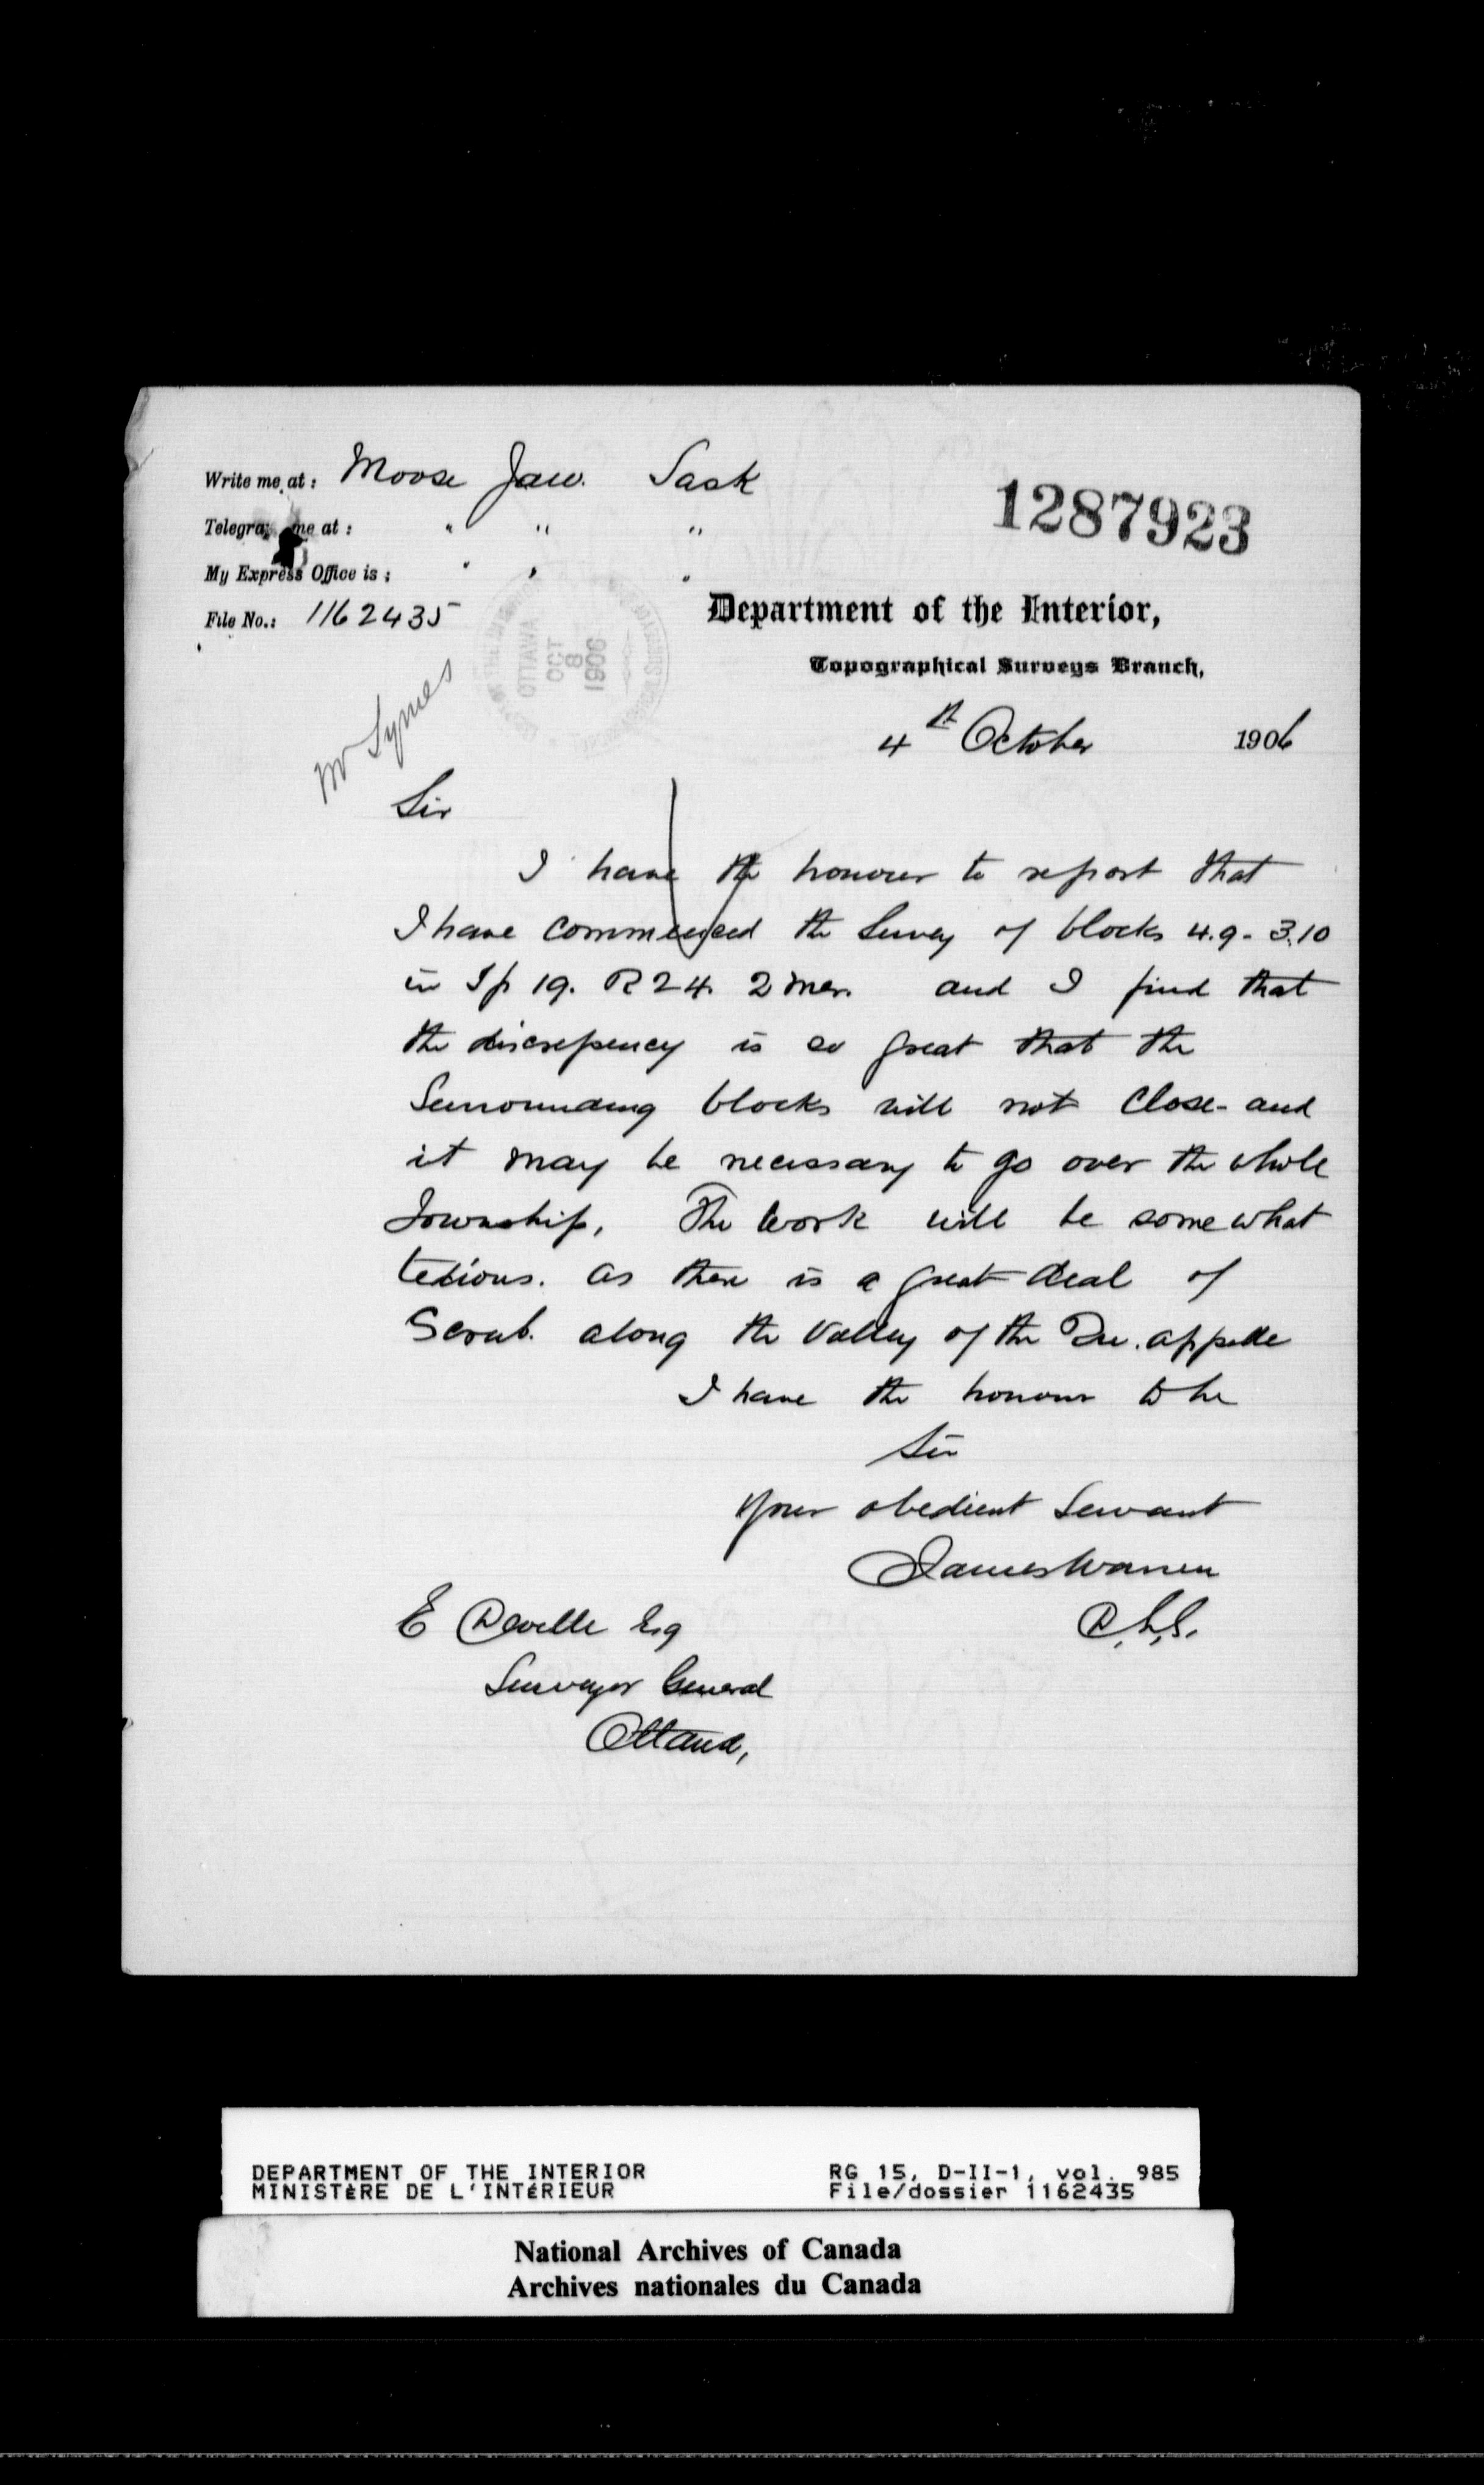 Write me at: Moose Jaw. Sask
Telegra me at: " " "
My Express Office is: " " "
File No.: 1162435
1287923
Department of the Interior,
Topographical Surveys Branch,
OTTAWA
OCT
8
1906
Mr Symes
4th October 1906
Sir
I have the honour to report that
I have commenced the Survey of blocks 4.9-3.10
in Tp 19. R 24. 2 mer. and I find that
the discrepency is so great that the
Surrounding blocks will not close- and
it may be necessary to go over the whole
Township. The work will be somewhat
tedious. as there is a great deal of
Scrub. along the Valley of the Qu.appelle
I have the honour to be
Sir
Your obedient Servant
James Warren
D.L.S.
E Deville Esq
Surveyor General
Ottawa,
DEPARTMENT OF THE INTERIOR RG 15, D-II-1, vol. 985
MINISTÈRE DE L'INTÉRIEUR File/dossier 1162435
National Archives of Canada
Archives nationales du Canada